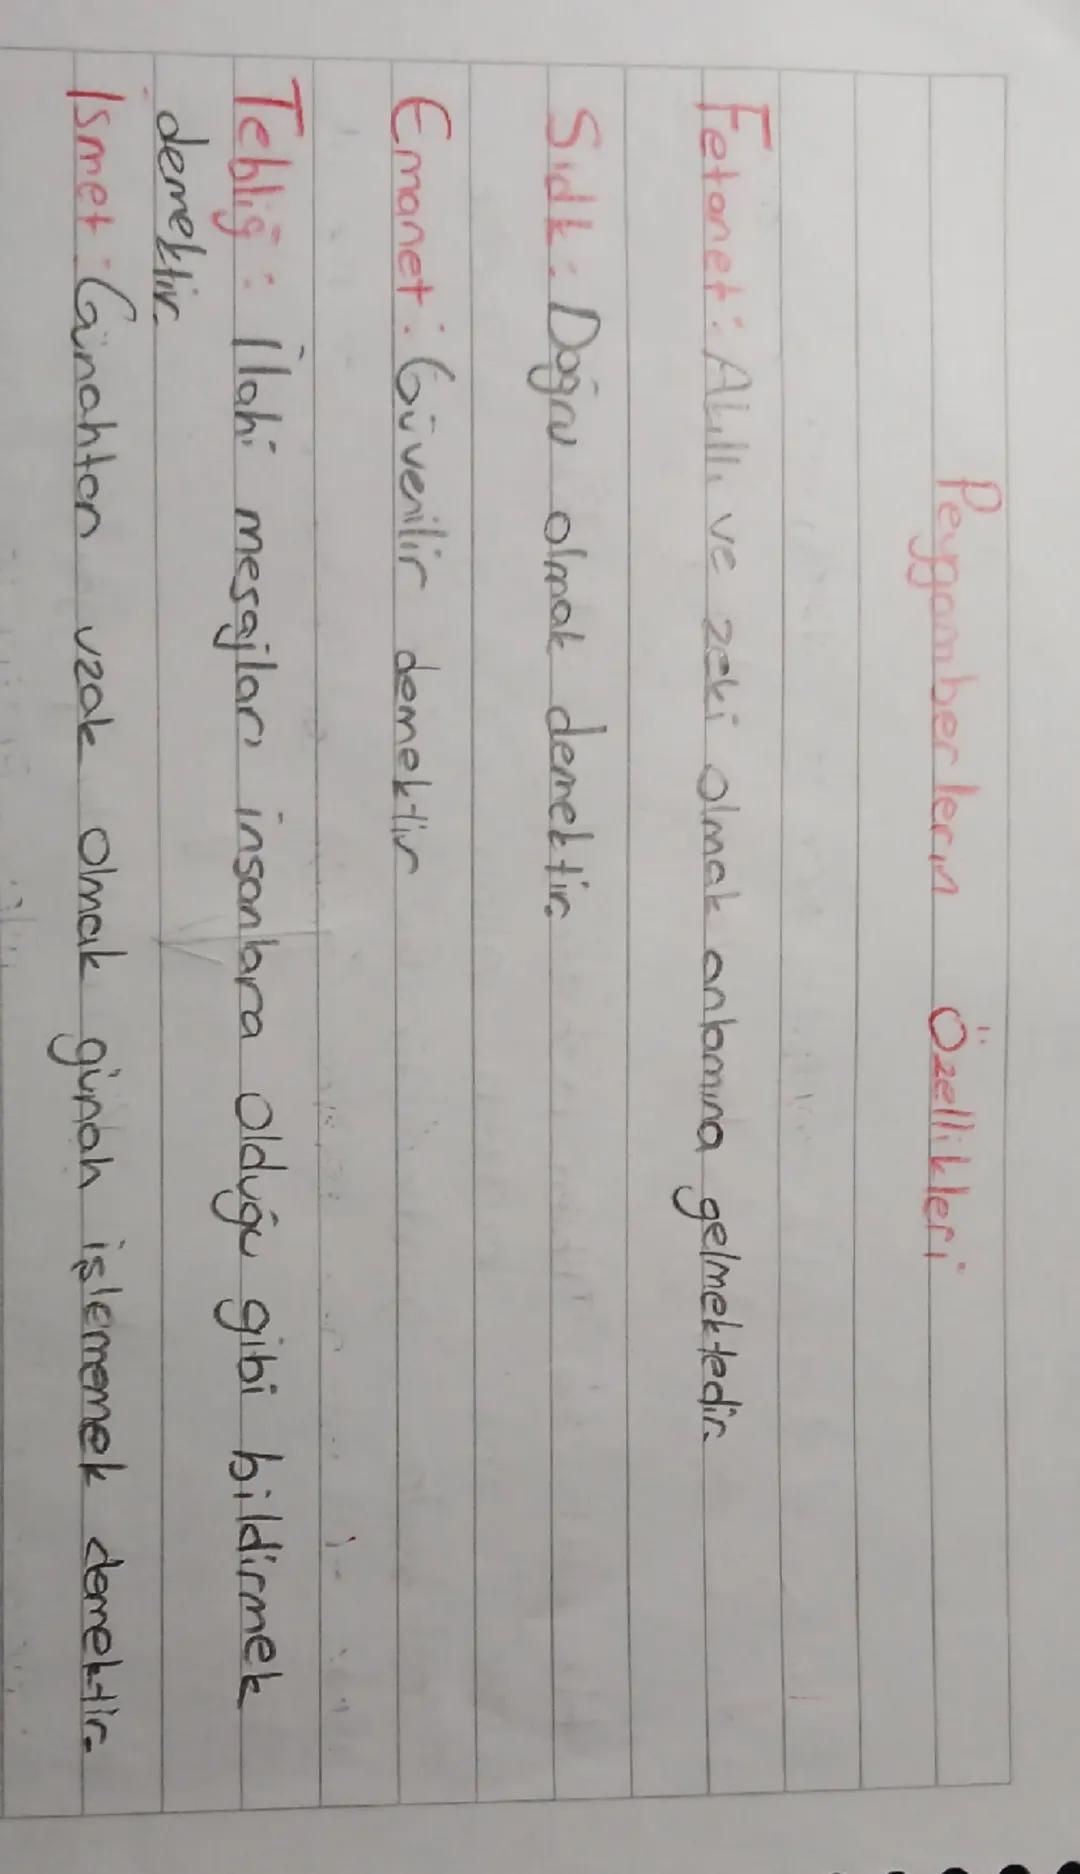 Peygamberlerin Özellikleri
Fetanet: Akıllı ve zeki olmak anlamına gelmektedir.
Sıdk: Doğru olmak demektir.
Emanet: Güvenilir demektir
Tebliğ: İlahi mesajları insanlara olduğu gibi bildirmek
demektir.
İsmet: Günahtan uzak olmak günah işlememek demektir.